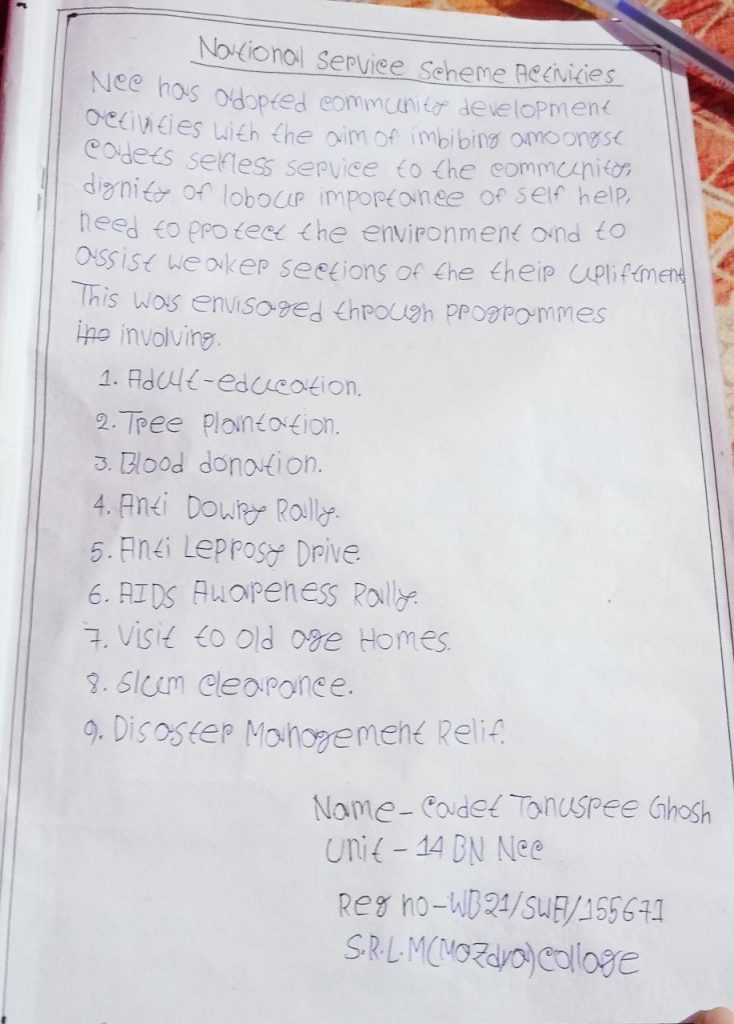 National Service Scheme Activities
Ncc has adopted community development
activities with the aim of imbibing amoongst
cadets selfless service to the community,
dignity of labour importance of self help,
need to protect the environment and to
assist weaker sections of the their upliftment
This was envisaged through programmes
involving.
1. Adult-education.
2. Tree Plantation.
3. Blood donation.
4. Anti Dowry Rally.
5. Anti Leprosy Drive.
6. AIDS Awareness Rally.
7. Visit to old age Homes.
8. Slum Clearance.
9. Disaster Management Relif.
Name- Cadet Tanusree Ghosh
Unit - 14 BN Ncc
Reg no-WB21/SWA/155671
S.R.L.M( ) Collage